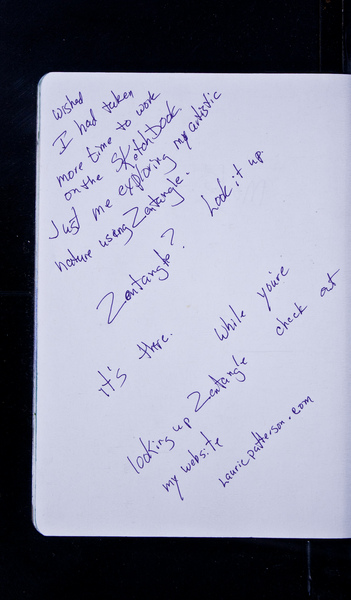 wished
I had taken
more time to work
on the Sketchbook
Just me exploring my artistic
nature using Zentangle.
Zentangle? Look it up.
it's there. While you're
looking up Zentangle check out
my website lauriepatterson.com